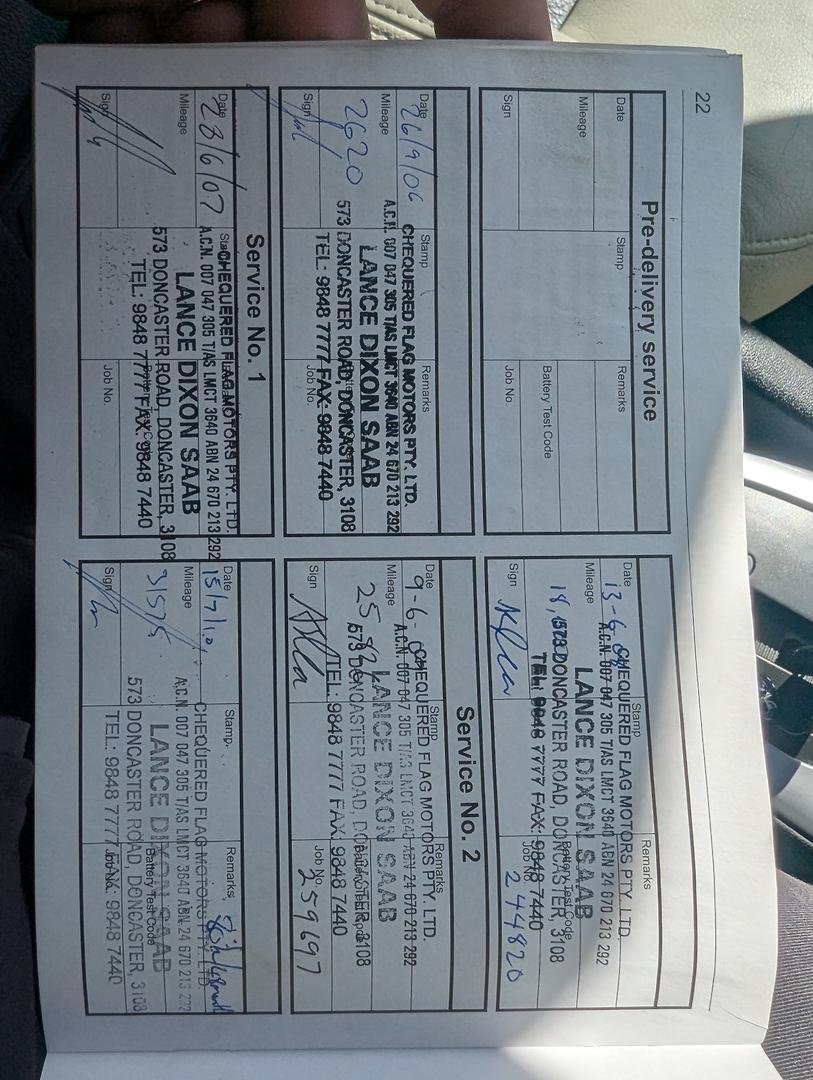 22
Pre-delivery service
Date
Stamp
Remarks
Mileage
Battery Test Code
Sign
Job No.
Date 26/9/06
Stamp
Remarks
CHEQUERED FLAG MOTORS PTY. LTD.
A.C.N. 007 047 305 T/AS LMCT 3640 ABN 24 670 213 292
Mileage 2620
LANCE DIXON SAAB
573 DONCASTER ROAD, DONCASTER, 3108
TEL: 9848 7777 FAX: 9848 7440
Sign
Job No.
Service No. 1
Date 28/6/07
CHEQUERED FLAG MOTORS PTY. LTD.
A.C.N. 007 047 305 T/AS LMCT 3640 ABN 24 670 213 292
Mileage
LANCE DIXON SAAB
573 DONCASTER ROAD, DONCASTER, 3108
TEL: 9848 7777 FAX: 9848 7440
Sign
Job No.
Date 13-6-
Stamp
Remarks
CHEQUERED FLAG MOTORS PTY. LTD.
A.C.N. 007 047 305 T/AS LMCT 3640 ABN 24 670 213 292
Mileage
LANCE DIXON SAAB
Battery Test Code
573 DONCASTER ROAD, DONCASTER, 3108
TEL: 9848 7777 FAX: 9848 7440
Sign
Job No. 244820
Service No. 2
Date 9-6-
Stamp
Remarks
CHEQUERED FLAG MOTORS PTY. LTD.
A.C.N. 007 047 305 T/AS LMCT 3640 ABN 24 670 213 292
Mileage
LANCE DIXON SAAB
573 DONCASTER ROAD, DONCASTER, 3108
TEL: 9848 7777 FAX: 9848 7440
Sign
Job No. 259697
Date 15/7/10
Stamp
Remarks
CHEQUERED FLAG MOTORS PTY. LTD.
A.C.N. 007 047 305 T/AS LMCT 3640 ABN 24 670 213 292
Mileage 31575
LANCE DIXON SAAB
Battery Test Code
573 DONCASTER ROAD, DONCASTER, 3108
TEL: 9848 7777 FAX: 9848 7440
Sign
Job No.